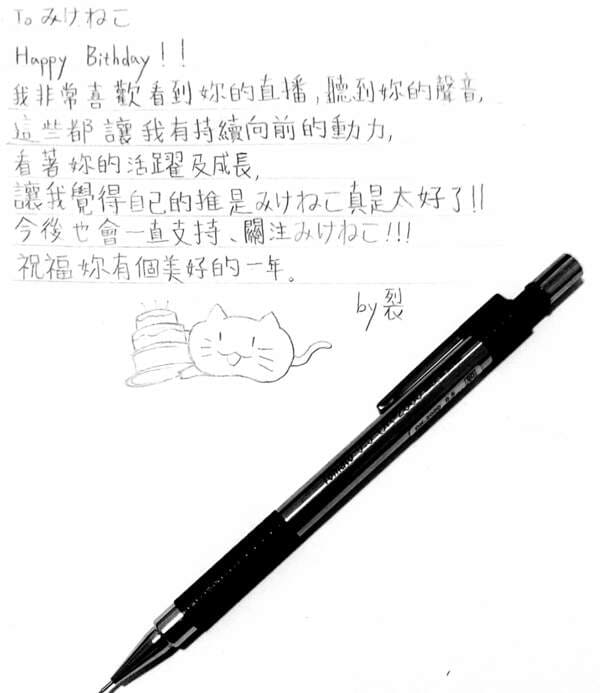 To みけねこ
Happy Bithday!!
我非常喜歡看到妳的直播,聽到妳的聲音,
這些都讓我有持續向前的動力,
看著妳的活躍及成長,
讓我覺得自己的推是みけねこ真是太好了!!
今後也會一直支持、關注みけねこ!!!
祝福妳有個美好的一年。
by裂